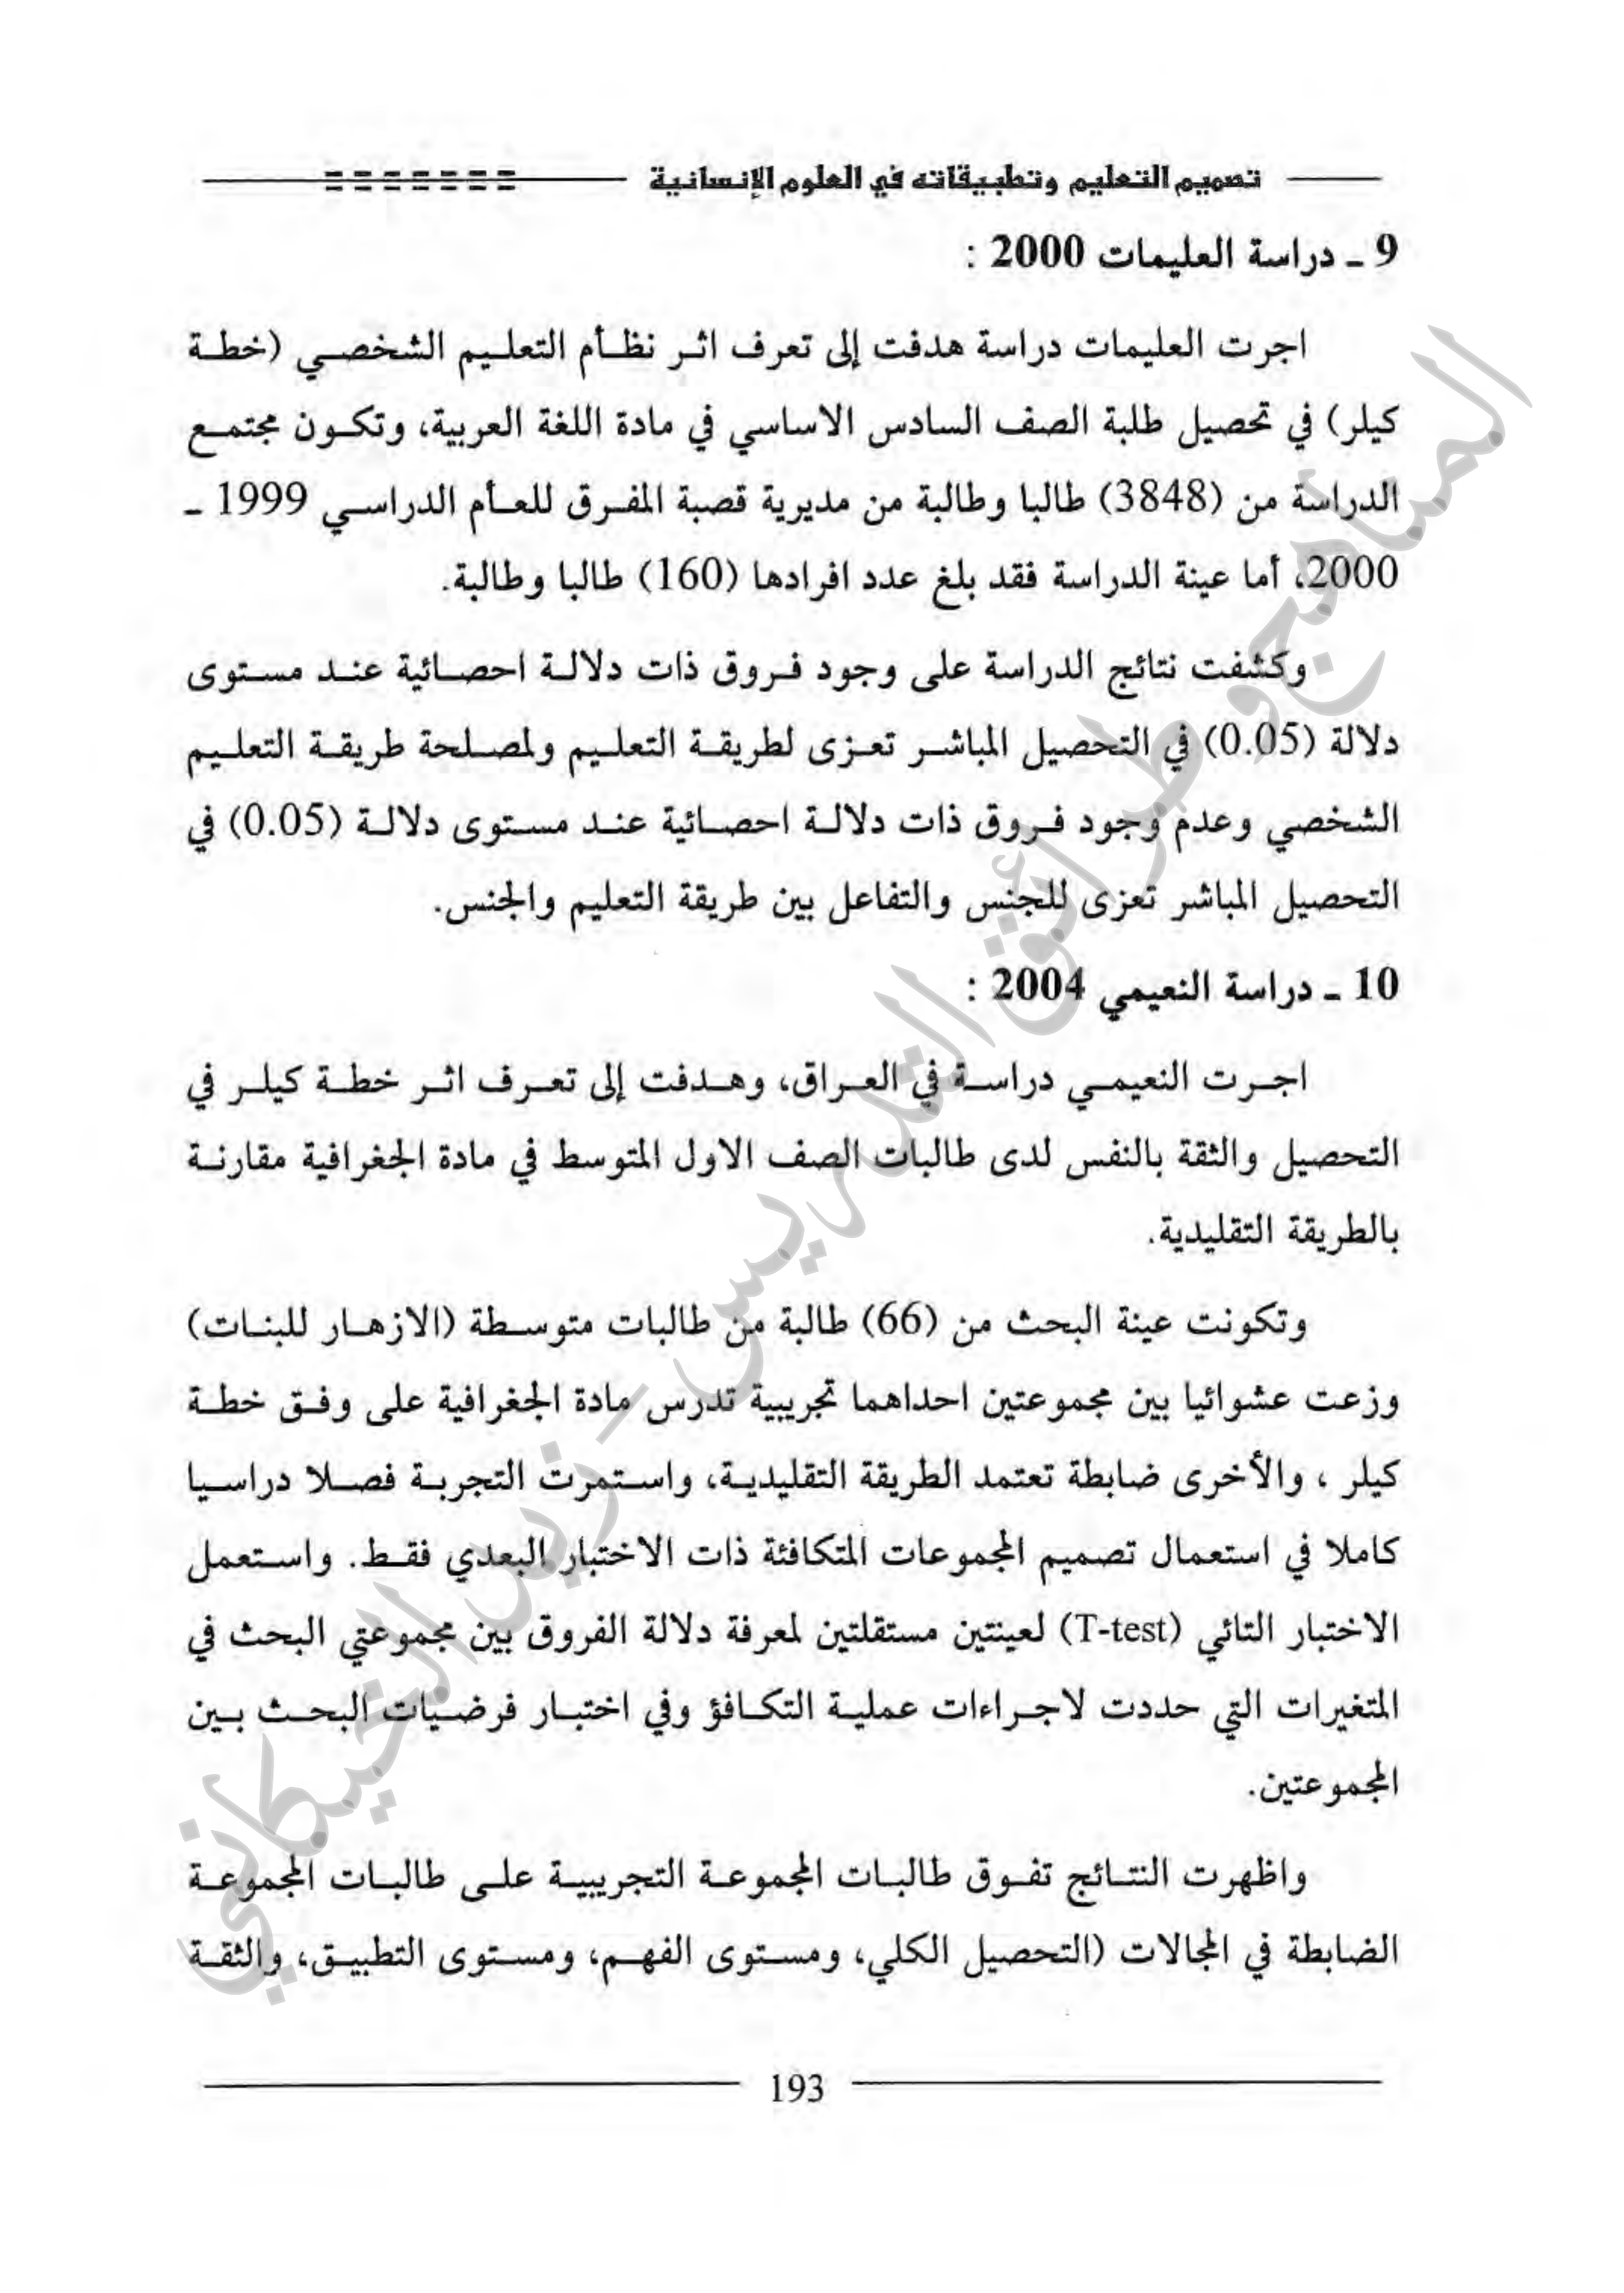 تصميم التعليم وتطبيقاته في العلوم الإنسانية
9 ـ دراسة العليمات 2000 :
اجرت العليمات دراسة هدفت إلى تعرف اثر نظأم التعليم الشخصي (خطة
كيلر) في تحصيل طلبة الصف السادس الاساسي في مادة اللغة العربية، وتكون مجتمع
الدراسة من (3848) طالبا وطالبة من مديرية قصبة المفرق للعأم الدراسي 1999 ـ
2000، أما عينة الدراسة فقد بلغ عدد افرادها (160) طالبا وطالبة.
وكشفت نتائج الدراسة على وجود فروق ذات دلالة احصائية عند مستوى
دلالة (0.05) في التحصيل المباشر تعزى لطريقة التعليم ولمصلحة طريقة التعليم
الشخصي وعدم وجود فروق ذات دلالة احصائية عند مستوى دلالة (0.05) في
التحصيل المباشر تعزى للجنس والتفاعل بين طريقة التعليم والجنس.
10 ـ دراسة النعيمي 2004 :
اجرت النعيمي دراسة في العراق، وهدفت إلى تعرف اثر خطة كيلر في
التحصيل والثقة بالنفس لدى طالبات الصف الاول المتوسط في مادة الجغرافية مقارنة
بالطريقة التقليدية.
وتكونت عينة البحث من (66) طالبة من طالبات متوسطة (الازهار للبنات)
وزعت عشوائيا بين مجموعتين احداهما تجريبية تدرس مادة الجغرافية على وفق خطة
كيلر ، والأخرى ضابطة تعتمد الطريقة التقليدية، واستمرت التجربة فصلا دراسيا
كاملا في استعمال تصميم المجموعات المتكافئة ذات الاختبار البعدي فقط. واستعمل
الاختبار التائي (T-test) لعينتين مستقلتين لمعرفة دلالة الفروق بين مجموعتي البحث في
المتغيرات التي حددت لاجراءات عملية التكافؤ وفي اختبار فرضيات البحث بين
المجموعتين.
واظهرت النتائج تفوق طالبات المجموعة التجريبية على طالبات المجموعة
الضابطة في المجالات (التحصيل الكلي، ومستوى الفهم، ومستوى التطبيق، والثقة
193
المناهج وطرائق التدريس - زيد الخيكاني